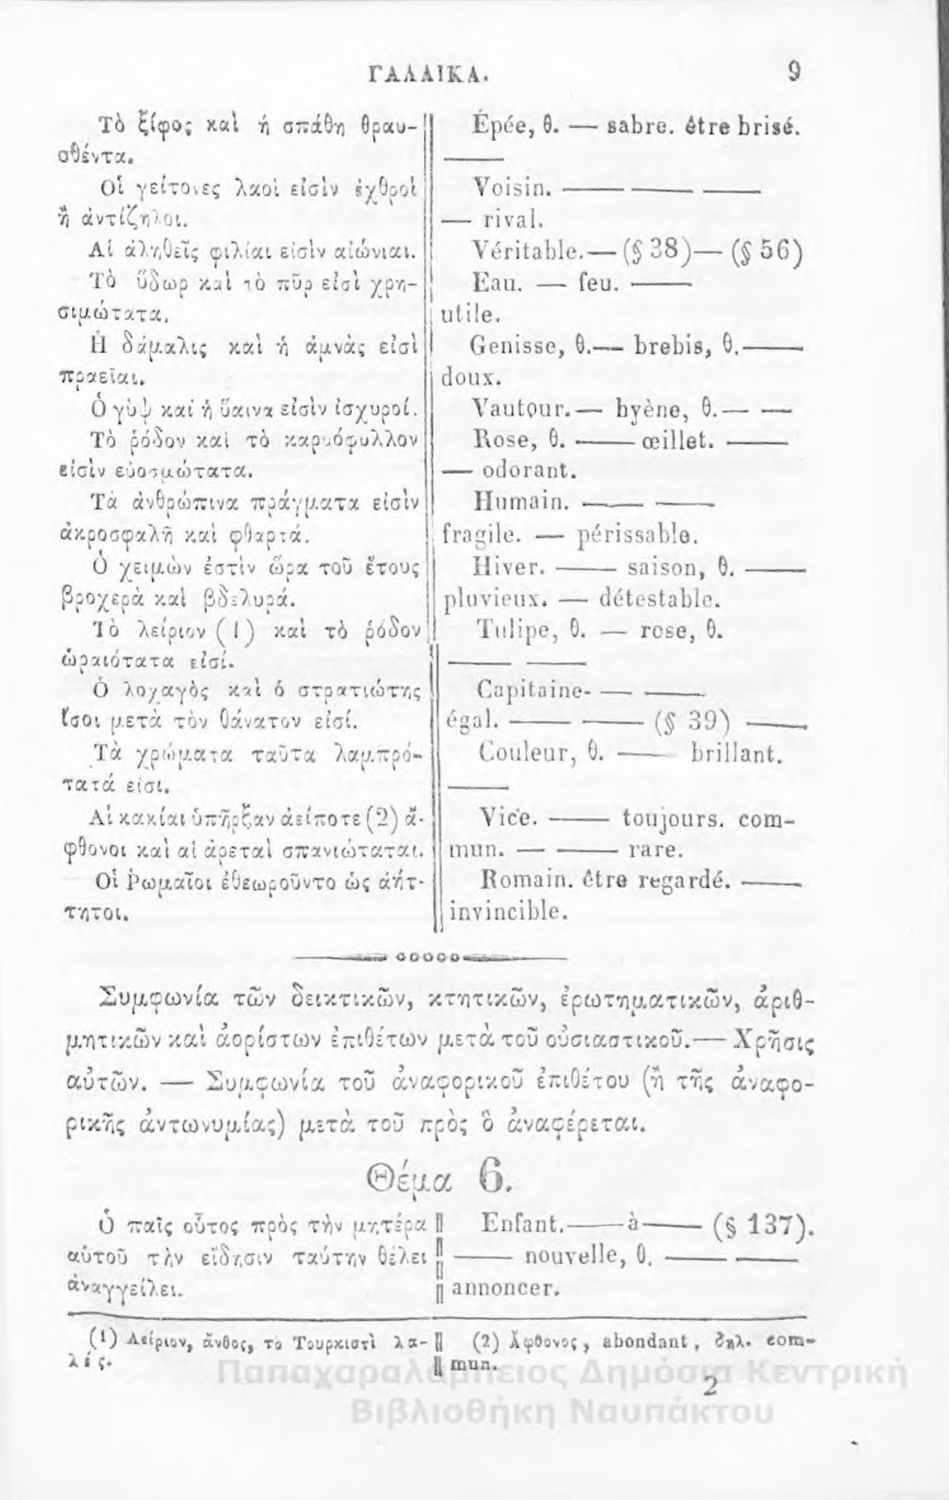 ΓΑΛΛΙΚΑ. 9
Τὸ ξίφος καὶ ἡ σπάθη θραυ-
σθέντα.
Οἱ γείτονες λαοὶ εἰσὶν ἐχθροὶ
ἢ ἀντίζηλοι.
Αἱ ἀληθεῖς φιλίαι εἰσὶν αἰώνιαι.
Τὸ ὕδωρ καὶ τὸ πῦρ εἰσὶ χρη-
σιμώτατα.
Ἡ δάμαλις καὶ ἡ ἀμνὰς εἰσὶ
πραεῖαι.
Ὁ γὺψ καὶ ἡ ὕαινα εἰσὶν ἰσχυροί.
Τὸ ῥόδον καὶ τὸ καρυόφυλλον
εἰσὶν εὐοσμώτατα.
Τὰ ἀνθρώπινα πράγματα εἰσὶν
ἀκροσφαλῆ καὶ φθαρτά.
Ὁ χειμὼν ἐστὶν ὥρα τοῦ ἔτους
βροχερὰ καὶ βδελυρά.
Τὸ λείριον (1) καὶ τὸ ῥόδον
ὡραιότατα εἰσί.
Ὁ λοχαγὸς καὶ ὁ στρατιώτης
ἴσοι μετὰ τὸν θάνατον εἰσί.
Τὰ χρώματα ταῦτα λαμπρό-
τατά εἰσι.
Αἱ κακίαι ὑπῆρξαν ἀείποτε (2) ἄ-
φθονοι καὶ αἱ ἀρεταὶ σπανιώταται.
Οἱ Ῥωμαῖοι ἐθεωροῦντο ὡς ἀήτ-
τητοι.
Épée, θ. — sabre. être brisé.
——
Voisin. —— —— ——
— rival.
Véritable.— (§ 38)— (§ 56)
Eau. — feu. ——
utile.
Genisse, θ.— brebis, θ.——
doux.
Vautour.— hyène, θ.— —
Rose, θ. —— œillet. ——
— odorant.
Humain. —— ——
fragile. — périssable.
Hiver. —— saison, θ. ——
pluvieux. — détestable.
Tulipe, θ. — rose, θ.
—— ——
Capitaine- — ——
égal. —— —— (§ 39) ——
Couleur, θ. —— brillant.
——
Vice. —— toujours. com-
mun. — —— rare.
Romain. être regardé. ——
invincible.
Συμφωνία τῶν δεικτικῶν, κτητικῶν, ἐρωτηματικῶν, ἀριθ-
μητικῶν καὶ ἀορίστων ἐπιθέτων μετὰ τοῦ οὐσιαστικοῦ.— Χρῆσις
αὐτῶν. — Συμφωνία τοῦ ἀναφορικοῦ ἐπιθέτου (ἢ τῆς ἀναφο-
ρικῆς ἀντωνυμίας) μετὰ τοῦ πρὸς ὃ ἀναφέρεται.
Θέμα 6.
Ὁ παῖς οὗτος πρὸς τὴν μητέρα
αὑτοῦ τὴν εἴδησιν ταύτην θέλει
ἀναγγείλει.
Enfant.——à—— (§ 137).
—— nouvelle, θ. —— ——
annoncer.
(1) Λείριον, ἄνθος, τὸ Τουρκιστὶ λα-
λές.
(2) Ἄφθονος, abondant, δηλ. com-
mun.
2
Παπαχαραλάμπειος Δημόσια Κεντρική
Βιβλιοθήκη Ναυπάκτου